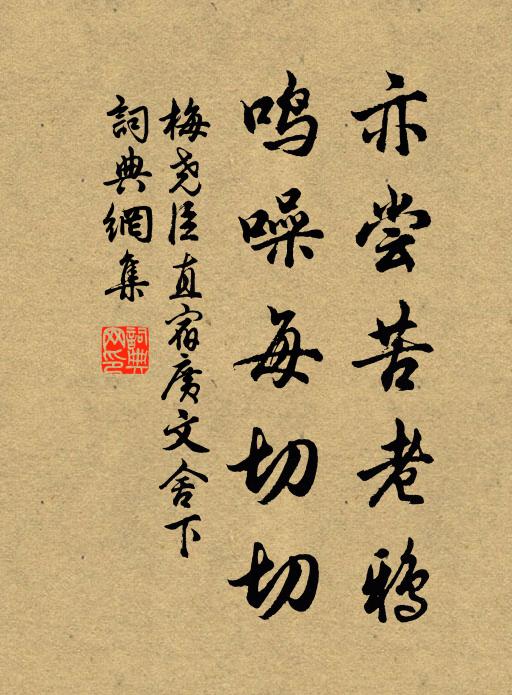 亦尝苦老鸦
鸣噪每切切
梅尧臣直宿广文舍下
詞典網集
詞典网印